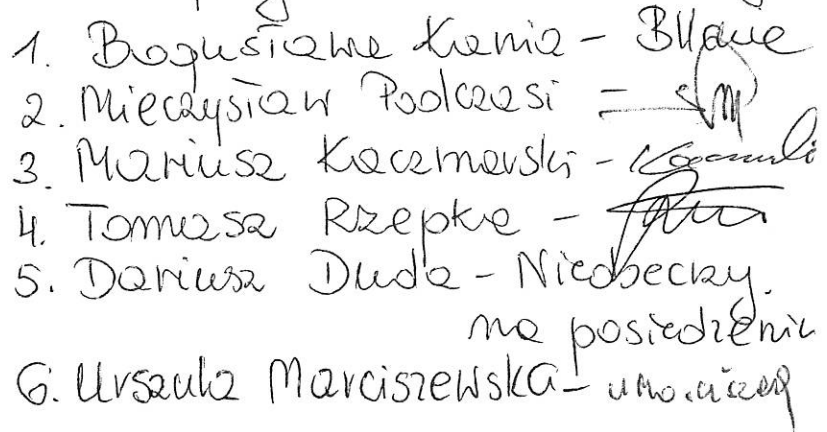 1. Bogusława Kania -
2. Mieczysław Podczasi =
3. Mariusz Kaczmarski -
4. Tomasz Rzepka -
5. Dariusz Duda - Nieobeczny
na posiedzeniu
6. Urszula Marciszewska -